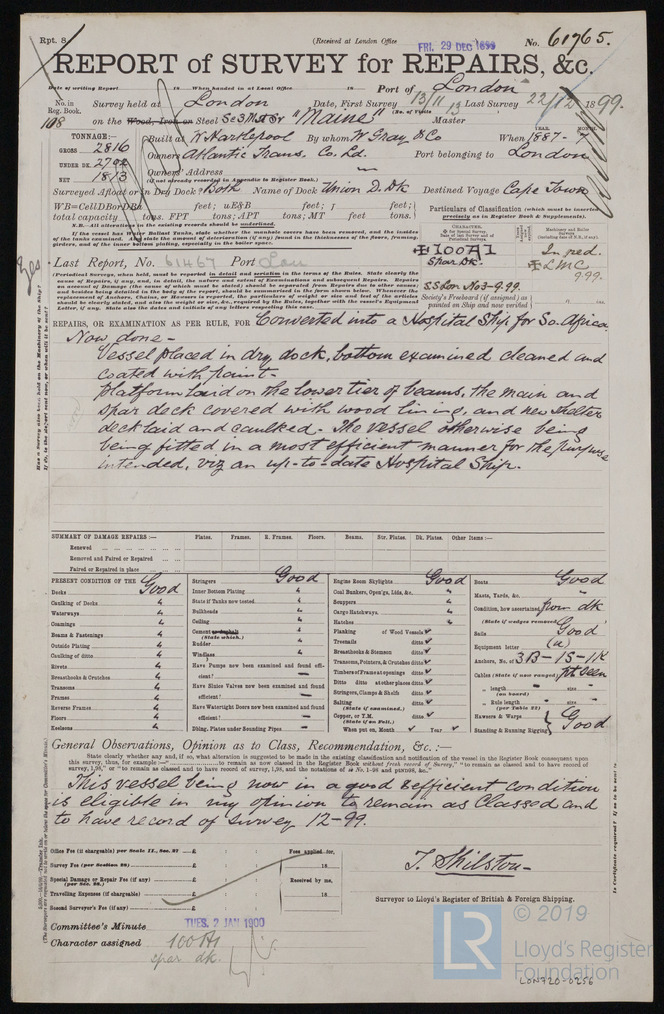 Rpt. 8.
(Received at London Office
FRI. 29 DEC 1899
No. 61765.
REPORT of SURVEY for REPAIRS, &c.
Date of writing Report 18 When handed in at Local Office 18 Port of London
No. in Reg. Book.
Survey held at London Date, First Survey 13/11 Last Survey 22/12 1899.
(No. of Visits 13)
168 on the Wood, Iron or Steel ScSMstr "Maine" Master
TONNAGE:—
GROSS 2816
UNDER DK. 2702
NET 1813
Built at W Hartlepool By whom W Gray & Co When 1887 - 7
YEAR. MONTH.
Owners Atlantic Trans. Co. Ld. Port belonging to London
Owners' Address
(if not already recorded in Appendix to Register Book.)
Surveyed Afloat or in Dry Dock? Both Name of Dock Union D. Dk Destined Voyage Cape Town
WB=CellDBorDBa feet; uE&B feet; f feet;
total capacity tons. FPT tons; APT tons; MT feet tons.
N.B.—All alterations in the existing records should be underlined.
Particulars of Classification (which must be inserted precisely as in Register Book & Supplements).
CHARACTER.
100A1
Spar Dk.
In red.
LMC
9.99.
SS Lon No3-9.99.
Society's Freeboard (if assigned) as painted on Ship and now verified
Last Report, No. 61467 Port Lon
REPAIRS, OR EXAMINATION AS PER RULE, FOR Converted into a Hospital Ship for So. Africa.
Now done -
Vessel placed in dry dock, bottom examined cleaned and
coated with paint-
Platform laid on the lower tier of beams, the main and
spar deck covered with wood lining, and new shelter
deck laid and caulked. The vessel otherwise being
being fitted in a most efficient manner for the purpose
intended, viz an up-to-date Hospital Ship.
SUMMARY OF DAMAGE REPAIRS:— Plates. Frames. R. Frames. Floors. Beams. Str. Plates. Dk. Plates. Other Items:—
Renewed
Removed and Faired or Repaired
Faired or Repaired in place
PRESENT CONDITION OF THE Good
Decks
Caulking of Decks
Waterways
Coamings
Beams & Fastenings
Outside Plating
Caulking of ditto
Rivets
Breasthooks & Crutches
Transoms
Frames
Reverse Frames
Floors
Keelsons
Stringers Good
Inner Bottom Plating
State if Tanks now tested
Bulkheads
Ceiling
Cement or Asphalt
(State which.)
Rudder
Windlass
Have Pumps now been examined and found efficient?
Have Sluice Valves now been examined and found efficient?
Have Watertight Doors now been examined and found efficient?
Dblng. Plates under Sounding Pipes
Engine Room Skylights Good
Coal Bunkers, Open'gs, Lids, &c.
Scuppers
Cargo Hatchways
Hatches
Planking of Wood Vessels
Treenails ditto
Breasthooks & Stemson ditto
Transoms, Pointers, & Crutches ditto
Timbers of Frame at openings ditto
Ditto ditto at other places ditto
Stringers, Clamps & Shelfs ditto
Salting ditto
(State if examined.)
Copper, or Y.M.
(State if on Felt.)
When put on, Month Year
Boats Good
Masts, Yards, &c. "
Condition, how ascertained from dk
(State if wedges removed)
Sails Good
Equipment letter (u)
Anchors, No. of 3B-1S-1K
Cables (State if now ranged) not seen
" length size
(on board)
" Rule length size
(per Table 22)
Hawsers & Warps
Standing & Running Rigging Good
General Observations, Opinion as to Class, Recommendation, &c. :—
This vessel being now in a good & efficient condition
is eligible in my opinion to remain as Classed and
to have record of Survey 12-99.
Office Fee (if chargeable) per Scale II., Sec. 27 £
Survey Fee (per Section 28) £
Special Damage or Repair Fee (if any) £
(per Sec. 28.)
Travelling Expenses (if chargeable) £
Second Surveyor's Fee (if any) £
Fees applied for,
18
Received by me,
18
T. Shilston
Surveyor to Lloyd's Register of British & Foreign Shipping.
Committee's Minute TUES. 2 JAN 1900
Character assigned 100A1
spar dk.
© 2019
LR
Lloyd's Register
Foundation
LON720-0256